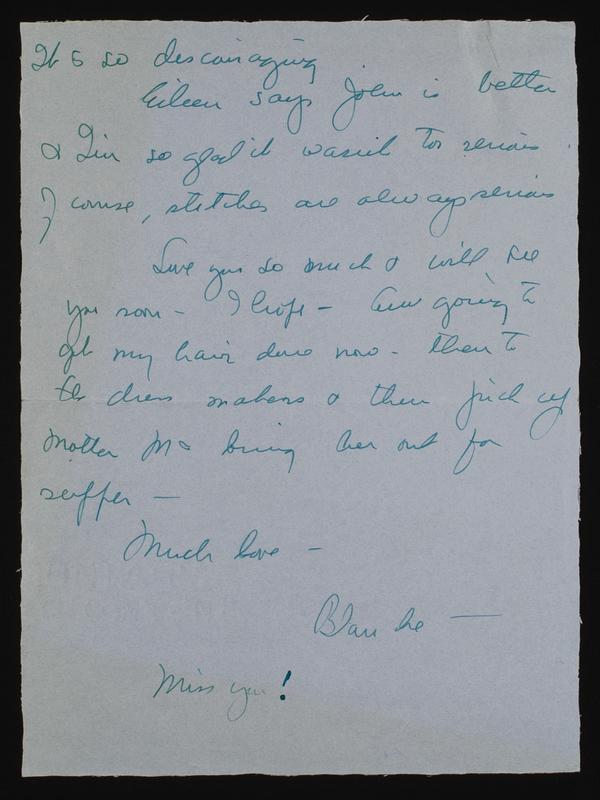 It is so discouraging
Eileen says John is better
& I'm so glad it wasn't too serious
Of course, stitches are always serious
Love you so much & will see
you soon - I hope - Am going to
get my hair done now - then to
the dress makers & then pick up
Mother M & bring her out for
supper —
Much love -
Blanche —
Miss you!